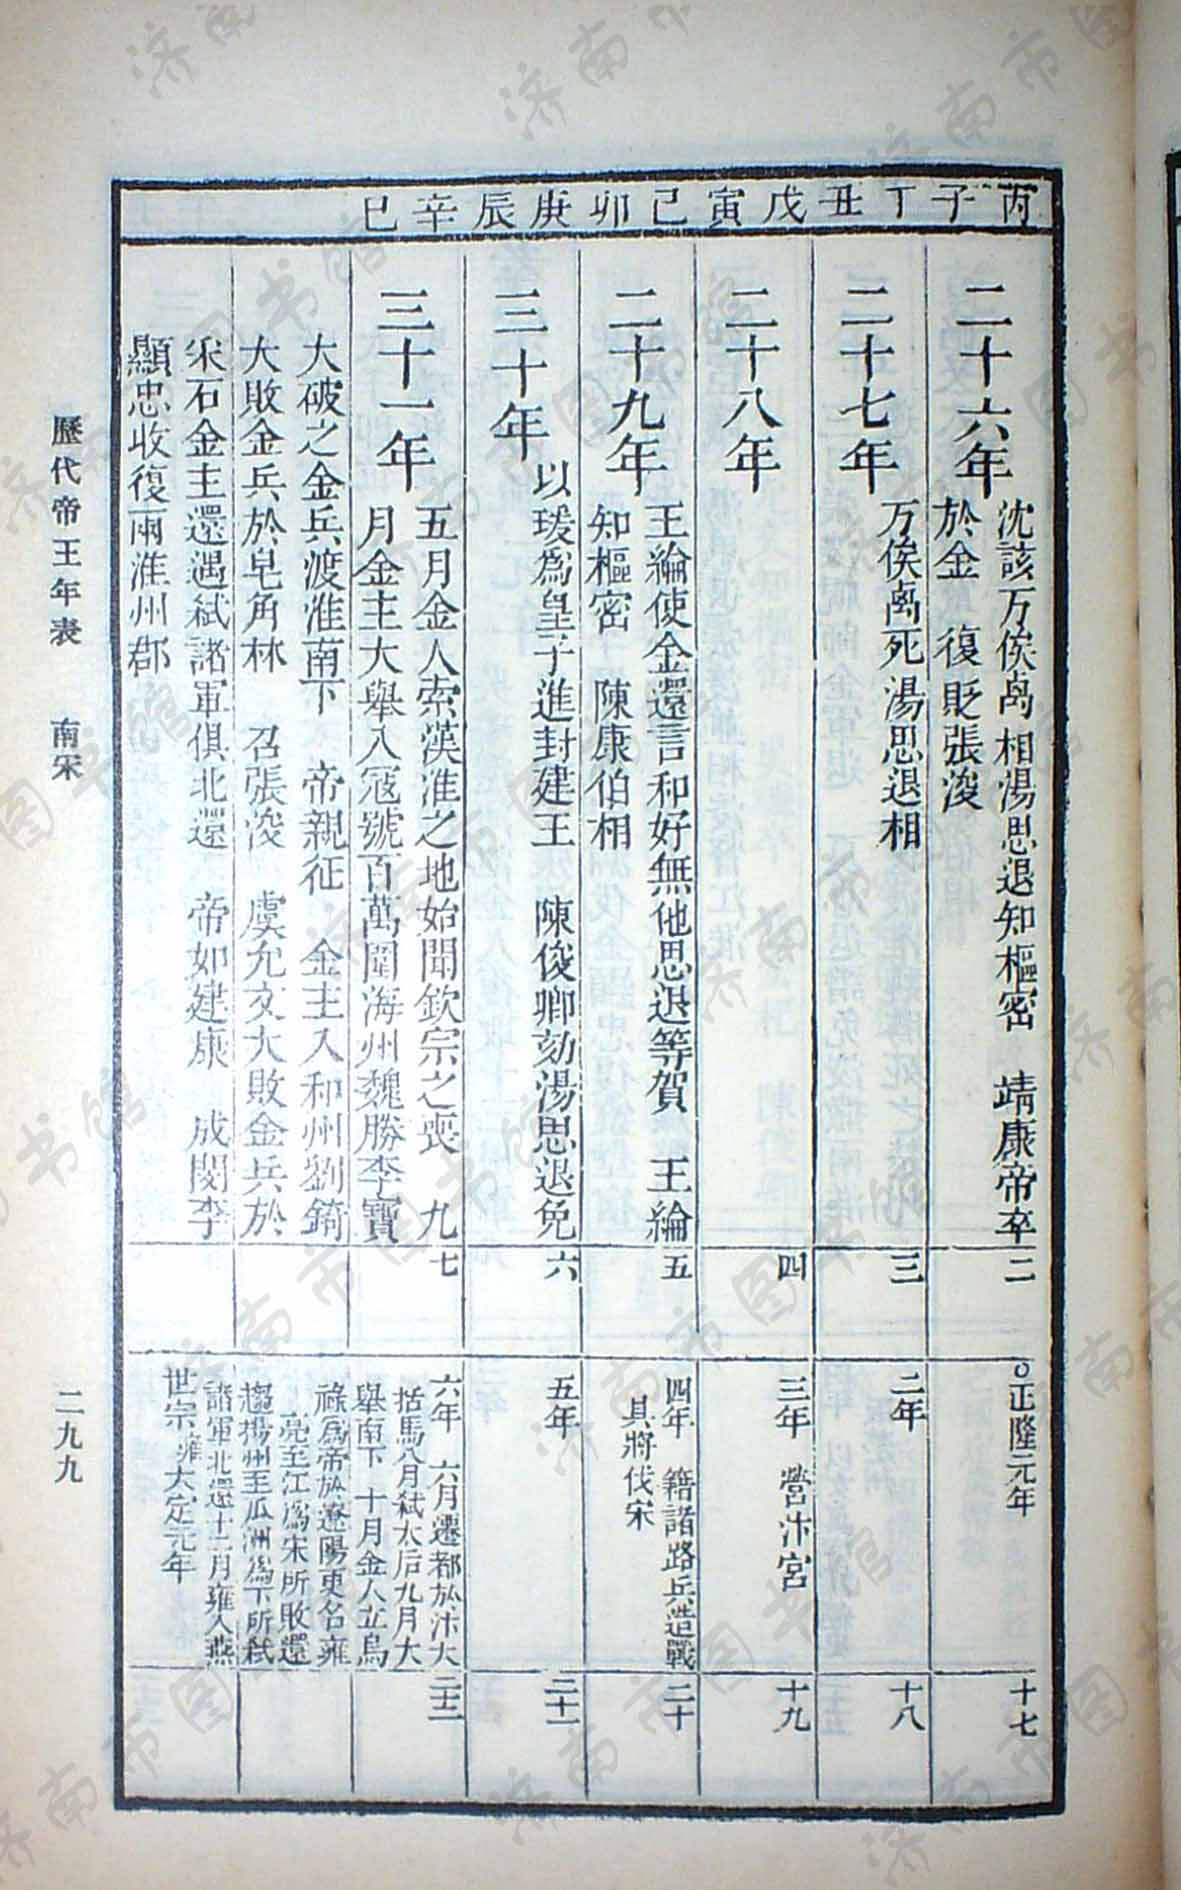 丙子丁丑戊寅己卯庚辰辛巳
二十六年
沈該万俟卨相湯思退知樞密　靖康帝卒
於金　復貶張浚
二
○正隆元年
十七
二十七年
万俟卨死湯思退相
三
二年
十八
二十八年
四
三年　營汴宮
十九
二十九年
王綸使金還言和好無他思退等賀　王綸
知樞密　陳康伯相
五
四年　籍諸路兵造戰
具將伐宋
二十
三十年
以瑗爲皇子進封建王　陳俊卿劾湯思退免
六
五年
二十一
三十一年
五月金人索漢淮之地始聞欽宗之喪　九
月金主大舉入寇號百萬圍海州魏勝李寶
大破之金兵渡淮南下　帝親征　金主入和州劉錡
大敗金兵於皂角林　召張浚　虞允文大敗金兵於
采石金主還遇弒諸軍俱北還　帝如建康　成閔李
顯忠收復兩淮州郡
七
六年　六月遷都於汴大
括馬八月弒太后九月大
舉南下　十月金人立烏
祿爲帝於遼陽更名雍
亮至江爲宋所敗還
趨揚州至瓜洲爲下所弒
諸軍北還十二月雍入燕
世宗雍大定元年
二十二
歷代帝王年表　南宋
二九九
济南市图书馆